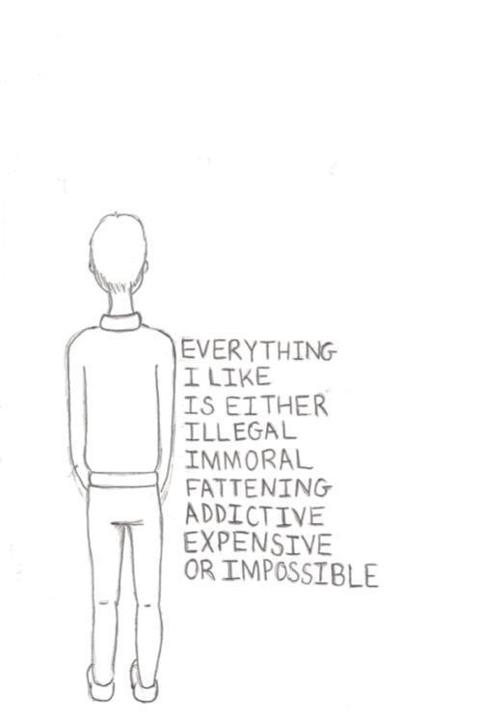 EVERYTHING
I LIKE
IS EITHER
ILLEGAL
IMMORAL
FATTENING
ADDICTIVE
EXPENSIVE
OR IMPOSSIBLE